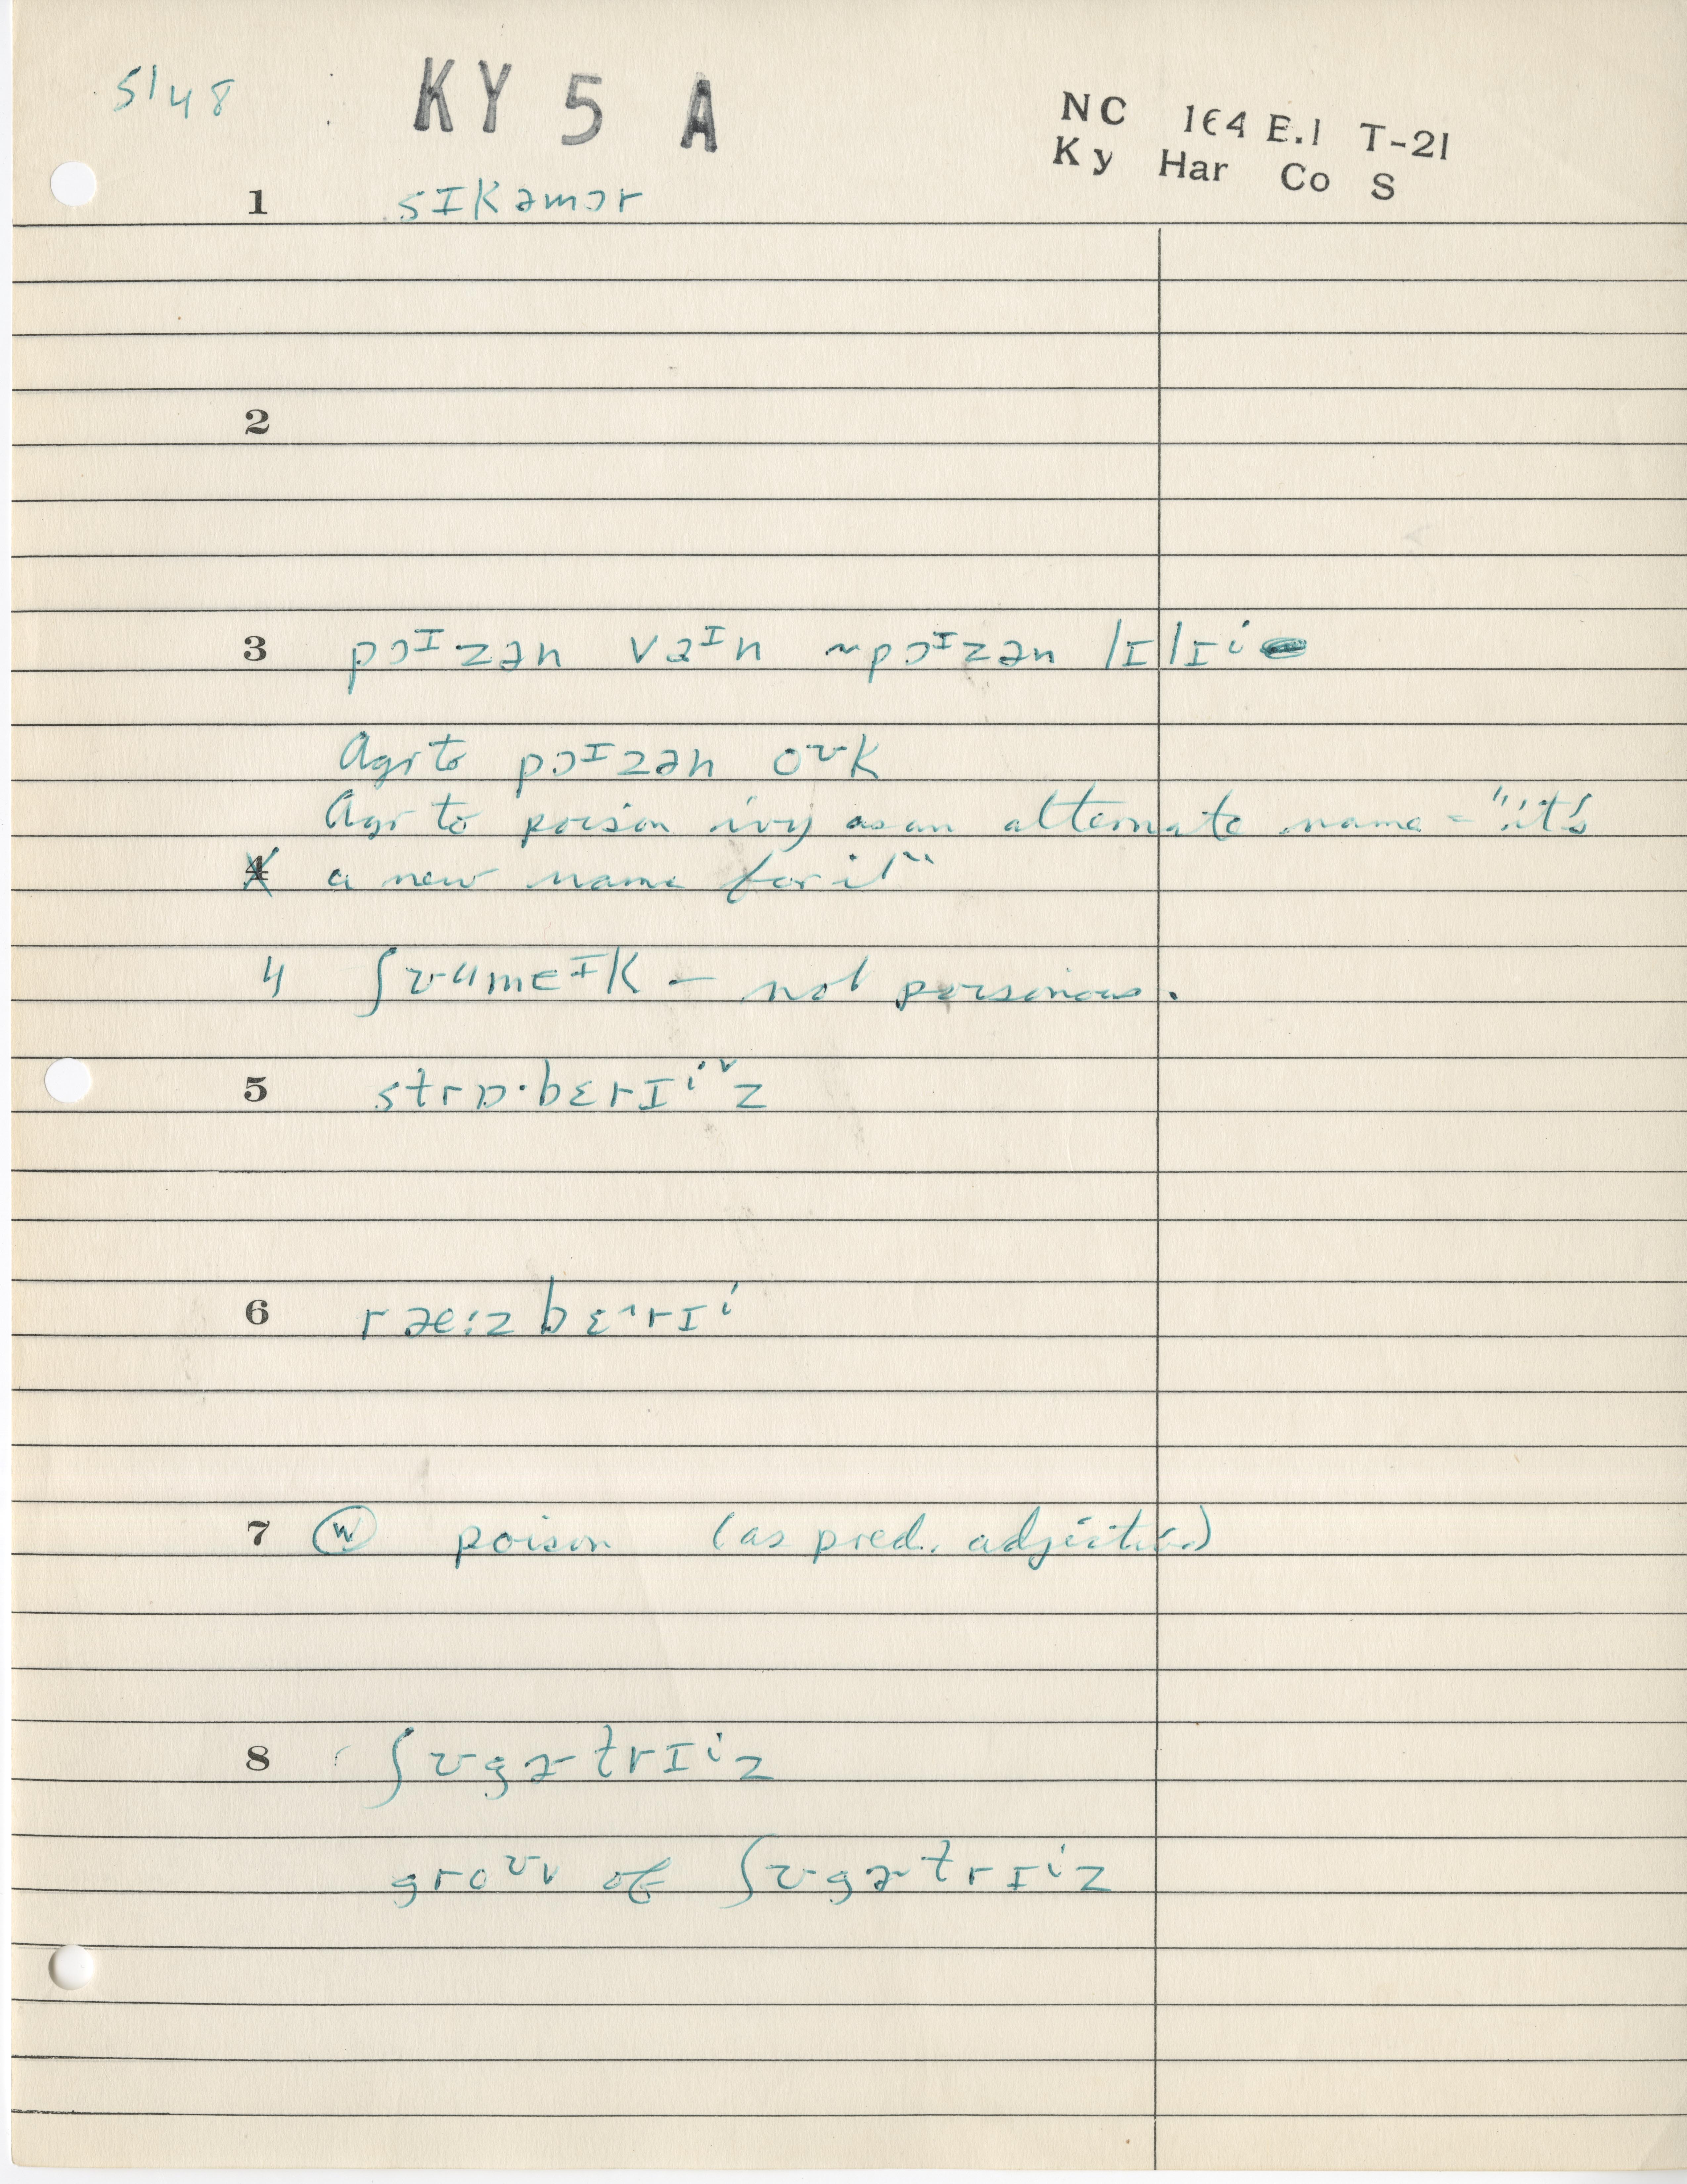 5148 KY 5 A
NC 164 E.1 T-21
Ky Har Co S
1 sɪkəmɔr
2
3 pɔᶦzən vaᶦn ~ pɔᶦzən lɪlɪⁱ
Agr to pɔᶦzən oᶹk
Agr to poison ivy as an alternate name = "it's
4 a new name for it"
4 ʃʊumeᶦk – not poisonous.
5 strɒ·bɛrɪⁱˇz
6 ræ:zbɛ^rɪⁱ
7 Ⓦ poison (as pred. adjective)
8 ʃʊgɚtrɪⁱz
groᶷv of ʃʊgɚtrɪⁱz